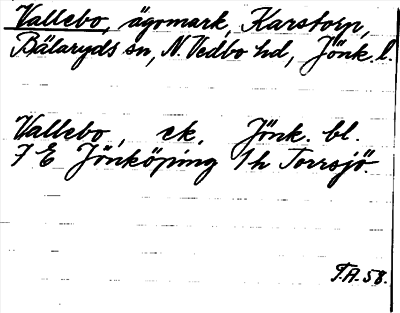 Vallebo, ägomark, Karstorp,
Bälaryds sn, N. Vedbo hd, Jönk. l.
Vallebo, ek. Jönk. bl.
7 E Jönköping 1h Torrsjö.
T.A. 58.